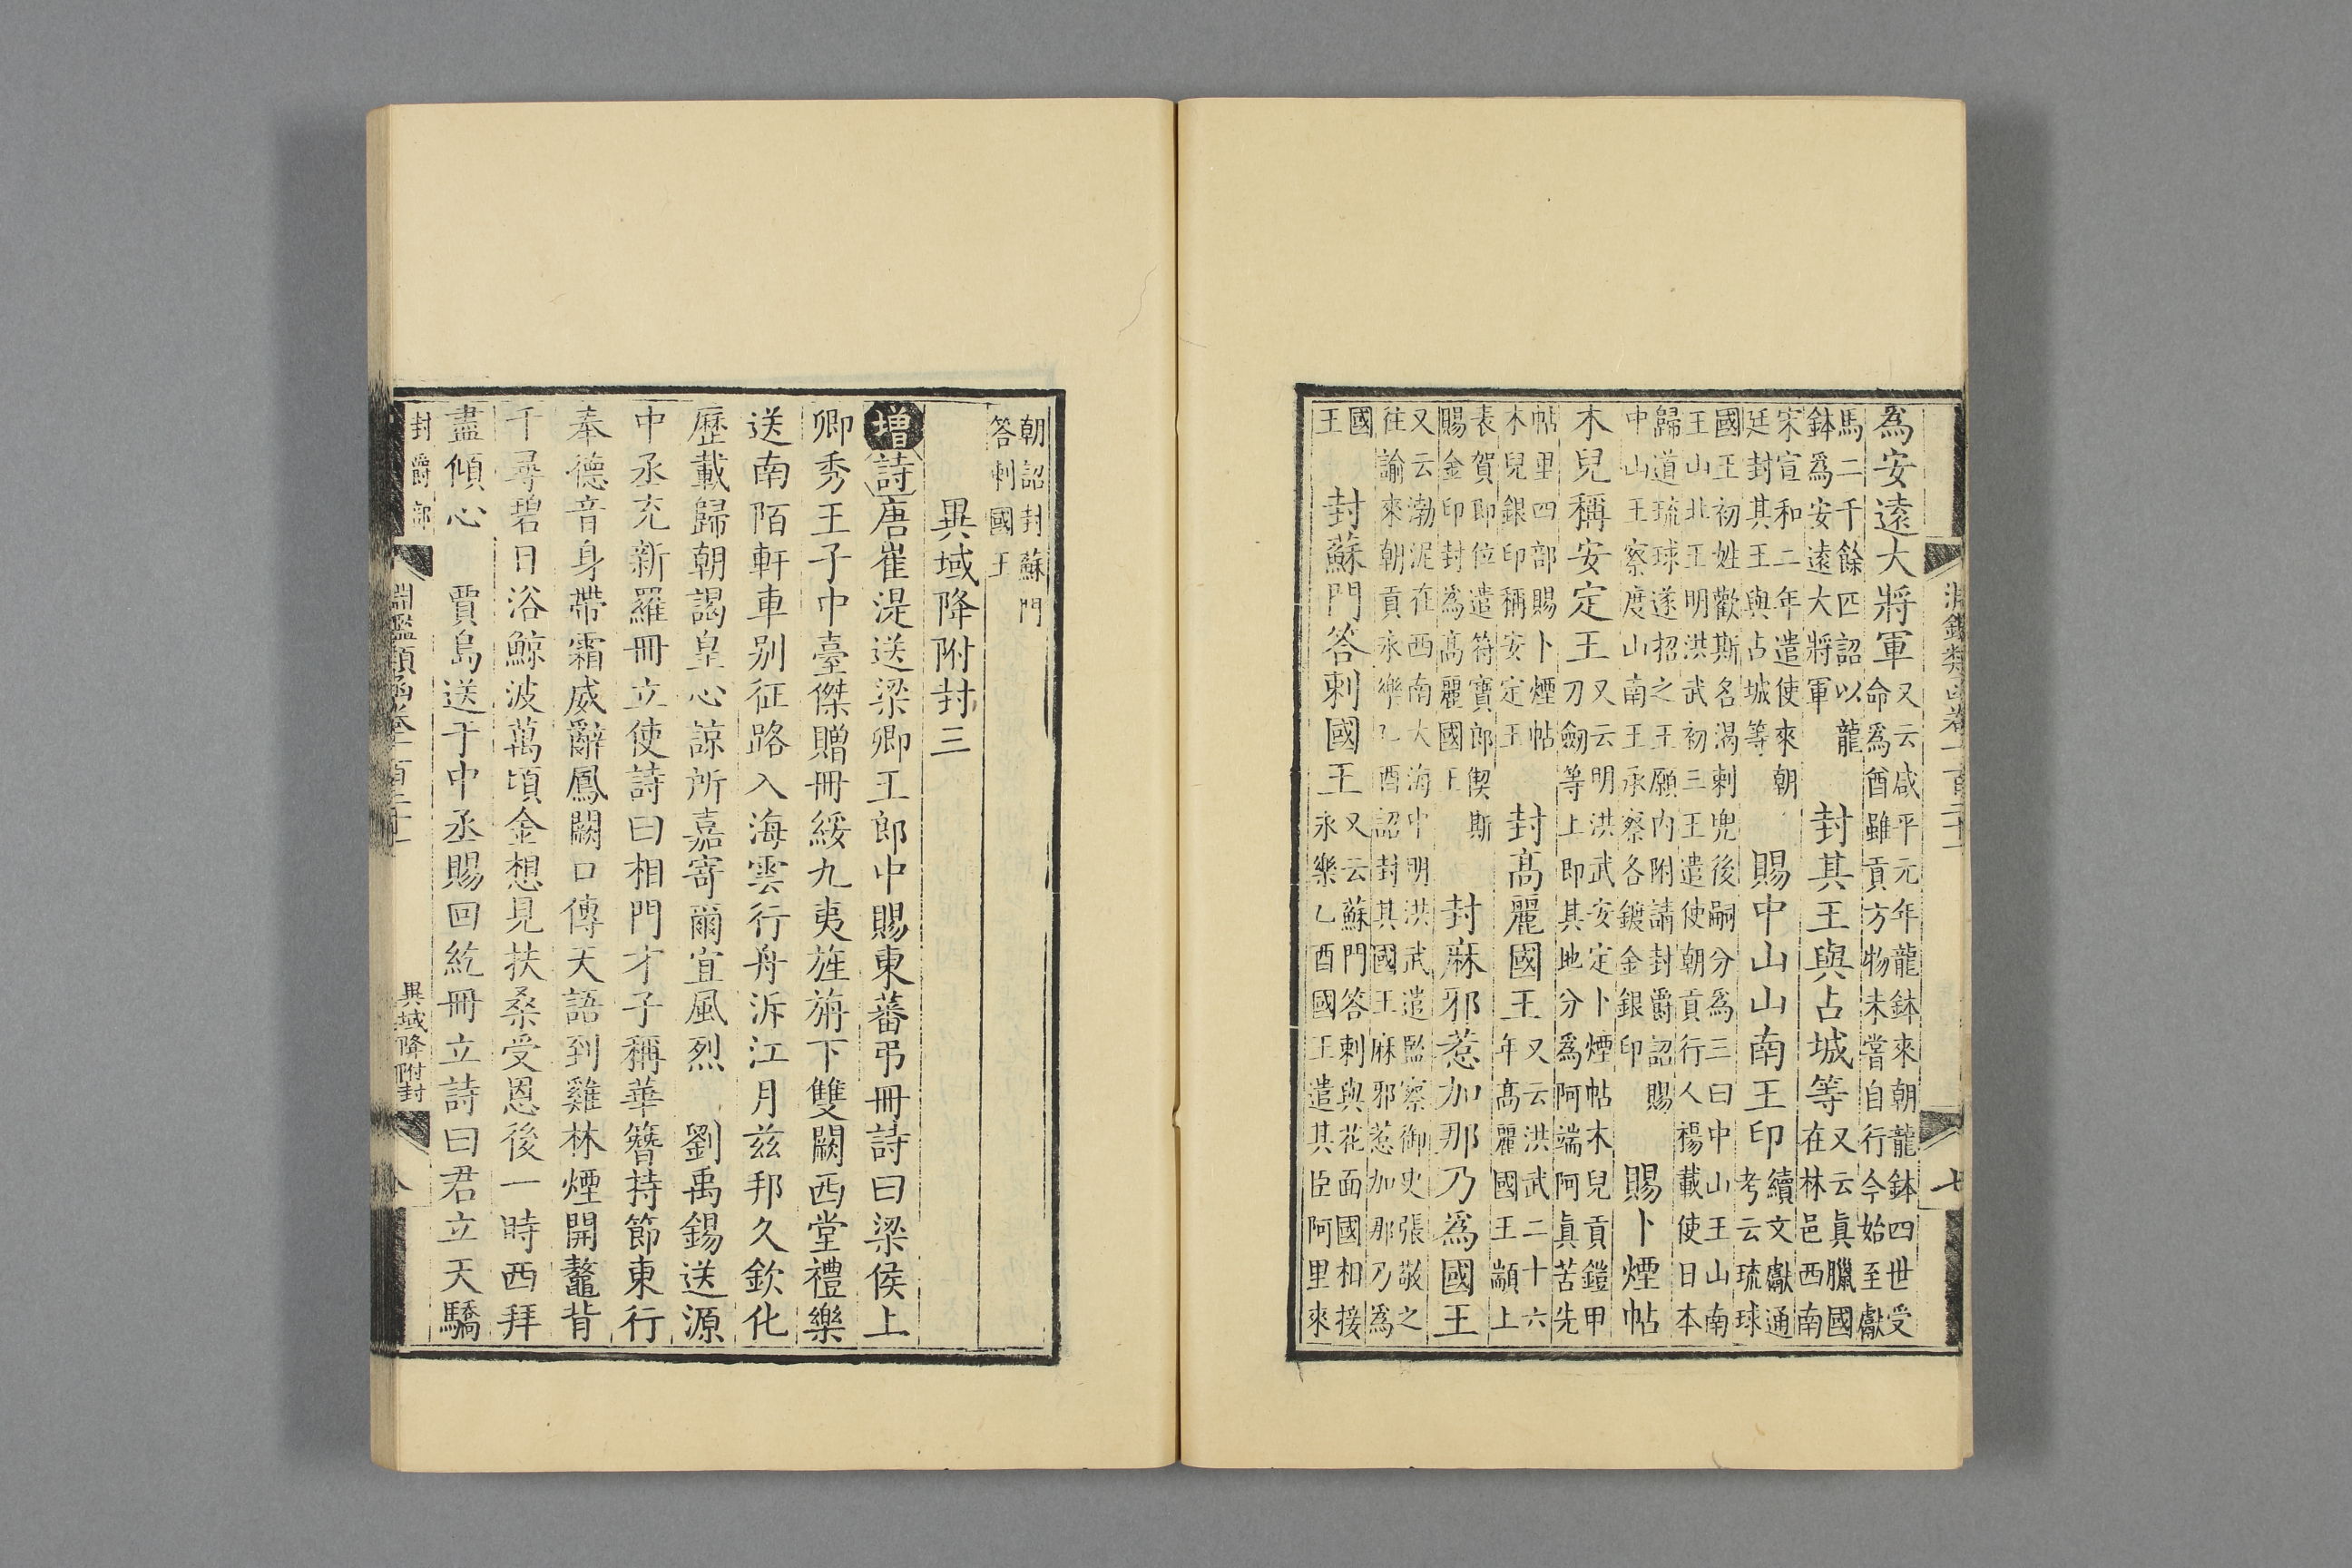 淵鑑類函卷一百二十一　七
為安遠大將軍
又云咸平元年龍鉢來朝龍鉢四世受
命為酋雖貢方物未嘗自行今始至獻
馬二千餘匹詔以龍
鉢為安遠大將軍
封其王與占城等
又云眞臘國
在林邑西南
宋宣和二年遣使來朝
廷封其王與占城等
賜中山山南王印
續文獻通
考云琉球
國王初姓歡斯名渴剌兜後嗣分為三曰中山王山南
王山北王明洪武初三王遣使朝貢行人楊載使日本
歸道琉球遂招之王願內附請封爵詔賜
中山王察度山南王承察各鍍金銀印
賜卜煙帖
木兒稱安定王
又云明洪武安定卜煙帖木兒貢鎧甲
刀劒等上即其地分為阿端阿眞苦先
帖里四部賜卜煙帖
木兒銀印稱安定王
封髙麗國王
又云洪武二十六
年髙麗國王顓上
表賀即位遣符寶郎偰斯
賜金印封為髙麗國王
封麻邪惹加那乃爲國王
又云渤泥在西南大海中明洪武遣監察御史張敬之
往諭來朝貢永樂乙酉詔封其國王麻邪惹加那乃爲
國
王
封蘇門答剌國王
又云蘇門答剌與花面國相接
永樂乙酉國王遣其臣阿里來
朝詔封蘇門
答剌國王
異域降附封三
增詩唐崔湜送梁卿王郎中賜東蕃弔冊詩曰梁侯上
卿秀王子中臺傑贈冊綏九夷旌旃下雙闕西堂禮樂
送南陌軒車別征路入海雲行舟泝江月茲邦久欽化
歷載歸朝謁皇心諒所嘉寄爾宣風烈　劉禹錫送源
中丞充新羅冊立使詩曰相門才子稱華簪持節東行
奉德音身帶霜威辭鳳闕口傳天語到雞林煙開鼇背
千尋碧日浴鯨波萬頃金想見扶桑受恩後一時西拜
盡傾心　賈島送于中丞賜回紇冊立詩曰君立天驕
封爵部　淵鑑類函卷一百二十一　異域降附封　八